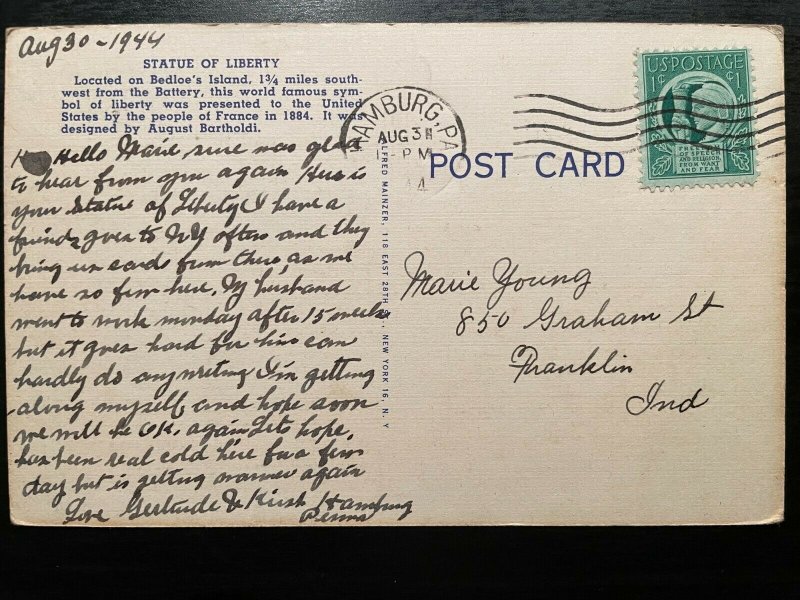 Aug 30 - 1944
STATUE OF LIBERTY
Located on Bedloe's Island, 1¾ miles south-
west from the Battery, this world famous sym-
bol of liberty was presented to the United
States by the people of France in 1884. It was
designed by August Bartholdi.
Hello Marie sure was glad
to hear from you again. Here is
your Statue of Liberty. I have a
friend goes to NY often and they
bring us cards from there, as we
have so few here. My husband
went to work monday after 15 weeks
but it goes hard for him can
hardly do any writing I'm getting
along myself and hope soon
we will be OK. again Lets hope.
has been real cold here for a few
day but is getting warmer again
Love Gertrude & Kirsh Hamburg
Penna
ALFRED MAINZER, 118 EAST 28TH ST., NEW YORK 16, N. Y
HAMBURG, PA.
AUG 31
PM
44
POST CARD
U.S. POSTAGE
1¢ 1¢
FREEDOM
OF SPEECH
AND RELIGION,
FROM WANT
AND FEAR
Marie Young
850 Graham St
Franklin
Ind